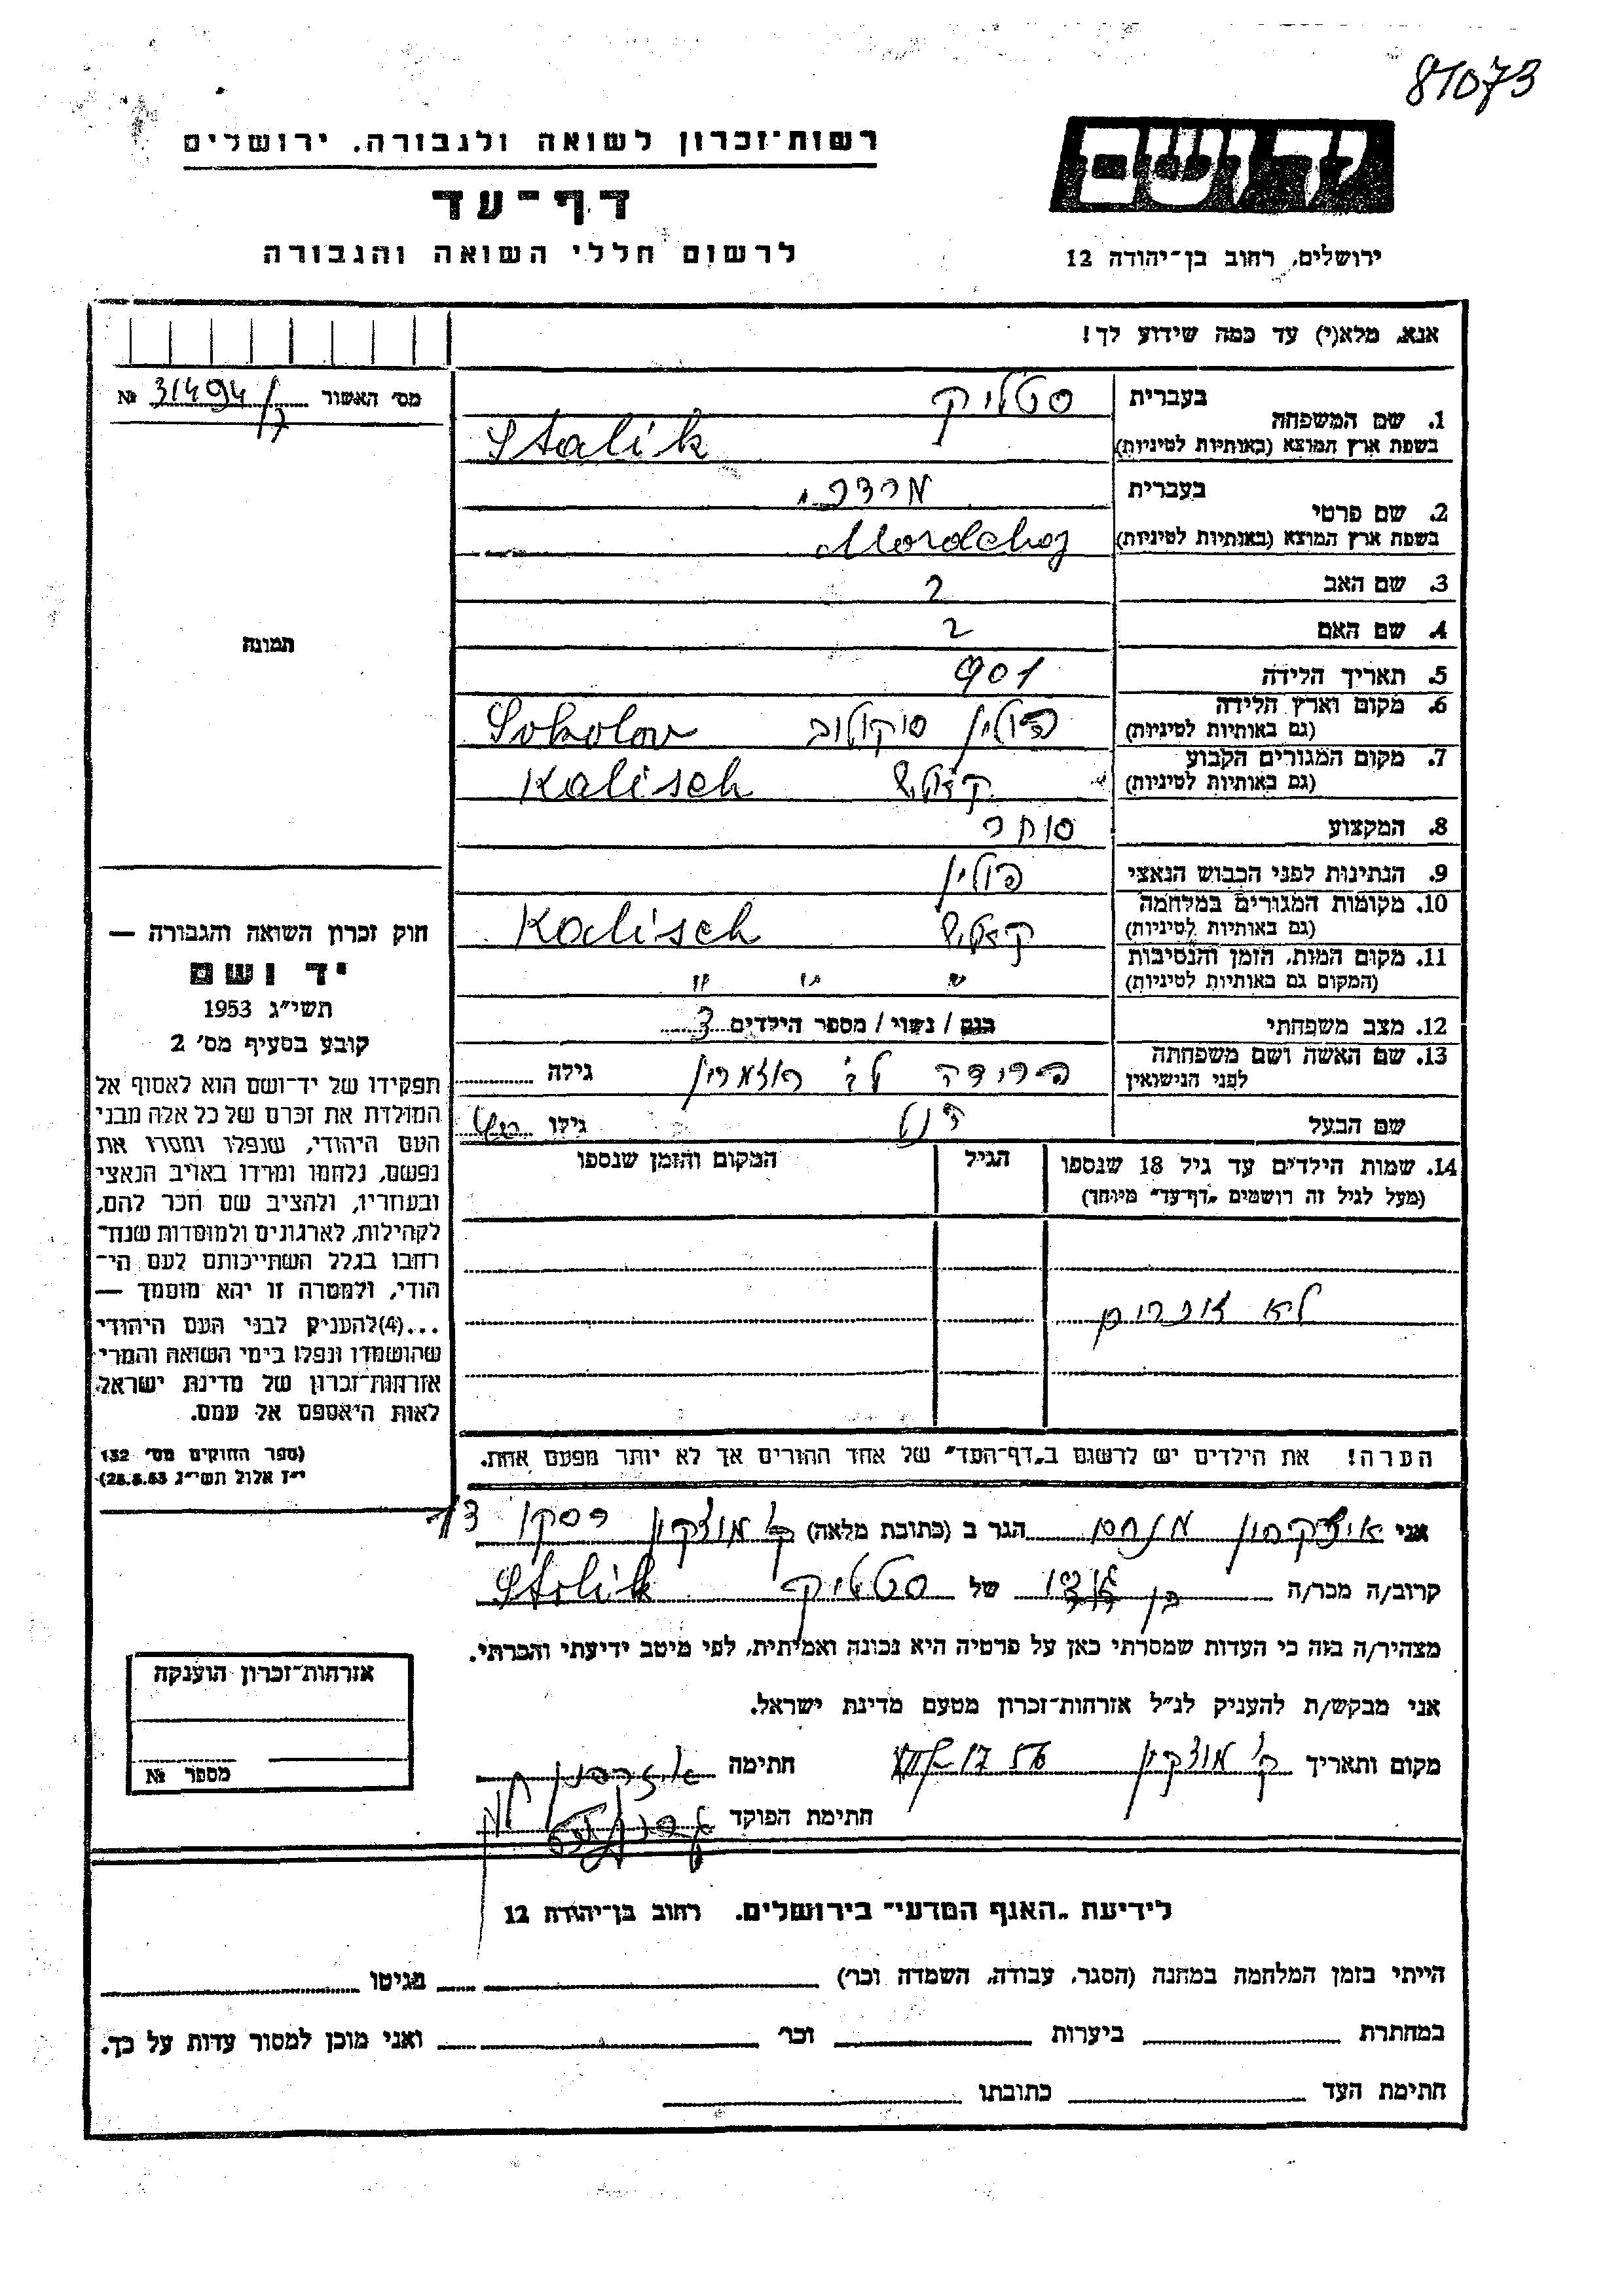 81073
רשות־זכרון לשואה ולגבורה, ירושלים
יד ושם
דף־עד
לרשום חללי השואה והגבורה
ירושלים, רחוב בן־יהודה 12
אנא, מלא(י) עד כמה שידוע לך!
מס׳ האשור 31494/ №
1. שם המשפחה
בעברית סטליק
בשפת ארץ המוצא (באותיות לטיניות) Stalik
2. שם פרטי
בעברית מרדכי
בשפת ארץ המוצא (באותיות לטיניות) Mordchaj
3. שם האב ?
4. שם האם ?
5. תאריך הלידה 901
6. מקום וארץ הלידה (גם באותיות לטיניות) פולין סוקולוב Sokolov
7. מקום המגורים הקבוע (גם באותיות לטיניות) קאליש Kalisch
8. המקצוע סוחר
9. הנתינות לפני הכבוש הנאצי פולין
10. מקומות המגורים במלחמה (גם באותיות לטיניות) קאליש Kalisch
11. מקום המות, הזמן והנסיבות (המקום גם באותיות לטיניות) " " "
12. מצב משפחתי רווק / נשוי / מספר הילדים 3
13. שם האשה ושם משפחתה לפני הנישואין פרודה לבי גילה
שם הבעל גילו
14. שמות הילדים עד גיל 18 שנספו (מעל לגיל זה רושמים „דף־עד״ מיוחד)
הגיל
המקום והזמן שנספו
לא זוכרים
הערה! את הילדים יש לרשום ב„דף־העד״ של אחד ההורים אך לא יותר מפעם אחת.
תמונה
חוק זכרון השואה והגבורה —
יד ושם
תשי״ג 1953
קובע בסעיף מס׳ 2
תפקידו של יד־ושם הוא לאסוף אל
המולדת את זכרם של כל אלה מבני
העם היהודי, שנפלו ומסרו את
נפשם, נלחמו ומרדו באויב הנאצי
ובעוזריו, ולהציב שם וזכר להם,
לקהילות, לארגונים ולמוסדות שנח־
רחבו בגלל השתייכותם לעם הי־
הודי, ולמטרה זו יהא מוסמך —
...(4)להעניק לבני העם היהודי
שהושמדו ונפלו בימי השואה והמרי
אזרחות־זכרון של מדינת ישראל
לאות היאספם אל עמם.
(ספר החוקים מס׳ 132
י״ז אלול תשי״ג 28.8.53)
אני איצקסון מנחם הגר ב (כתובת מלאה) ק׳ מוצקין
קרוב/ה מכר/ה בן דוד של סטליק Stolik
מצהיר/ה בזה כי העדות שמסרתי כאן על פרטיה היא נכונה ואמיתית, לפי מיטב ידיעתי והכרתי.
אני מבקש/ת להעניק לנ״ל אזרחות־זכרון מטעם מדינת ישראל.
מקום ותאריך ק׳ מוצקין חתימה
חתימת הפוקד
אזרחות־זכרון הוענקה
מספר №
לידיעת „האגף המדעי״ בירושלים, רחוב בן־יהודה 12
הייתי בזמן המלחמה במחנה (הסגר, עבודה, השמדה וכר׳) בגיטו
במחתרת ביערות וכר׳ ואני מוכן למסור עדות על כך.
חתימת העד כתובתו